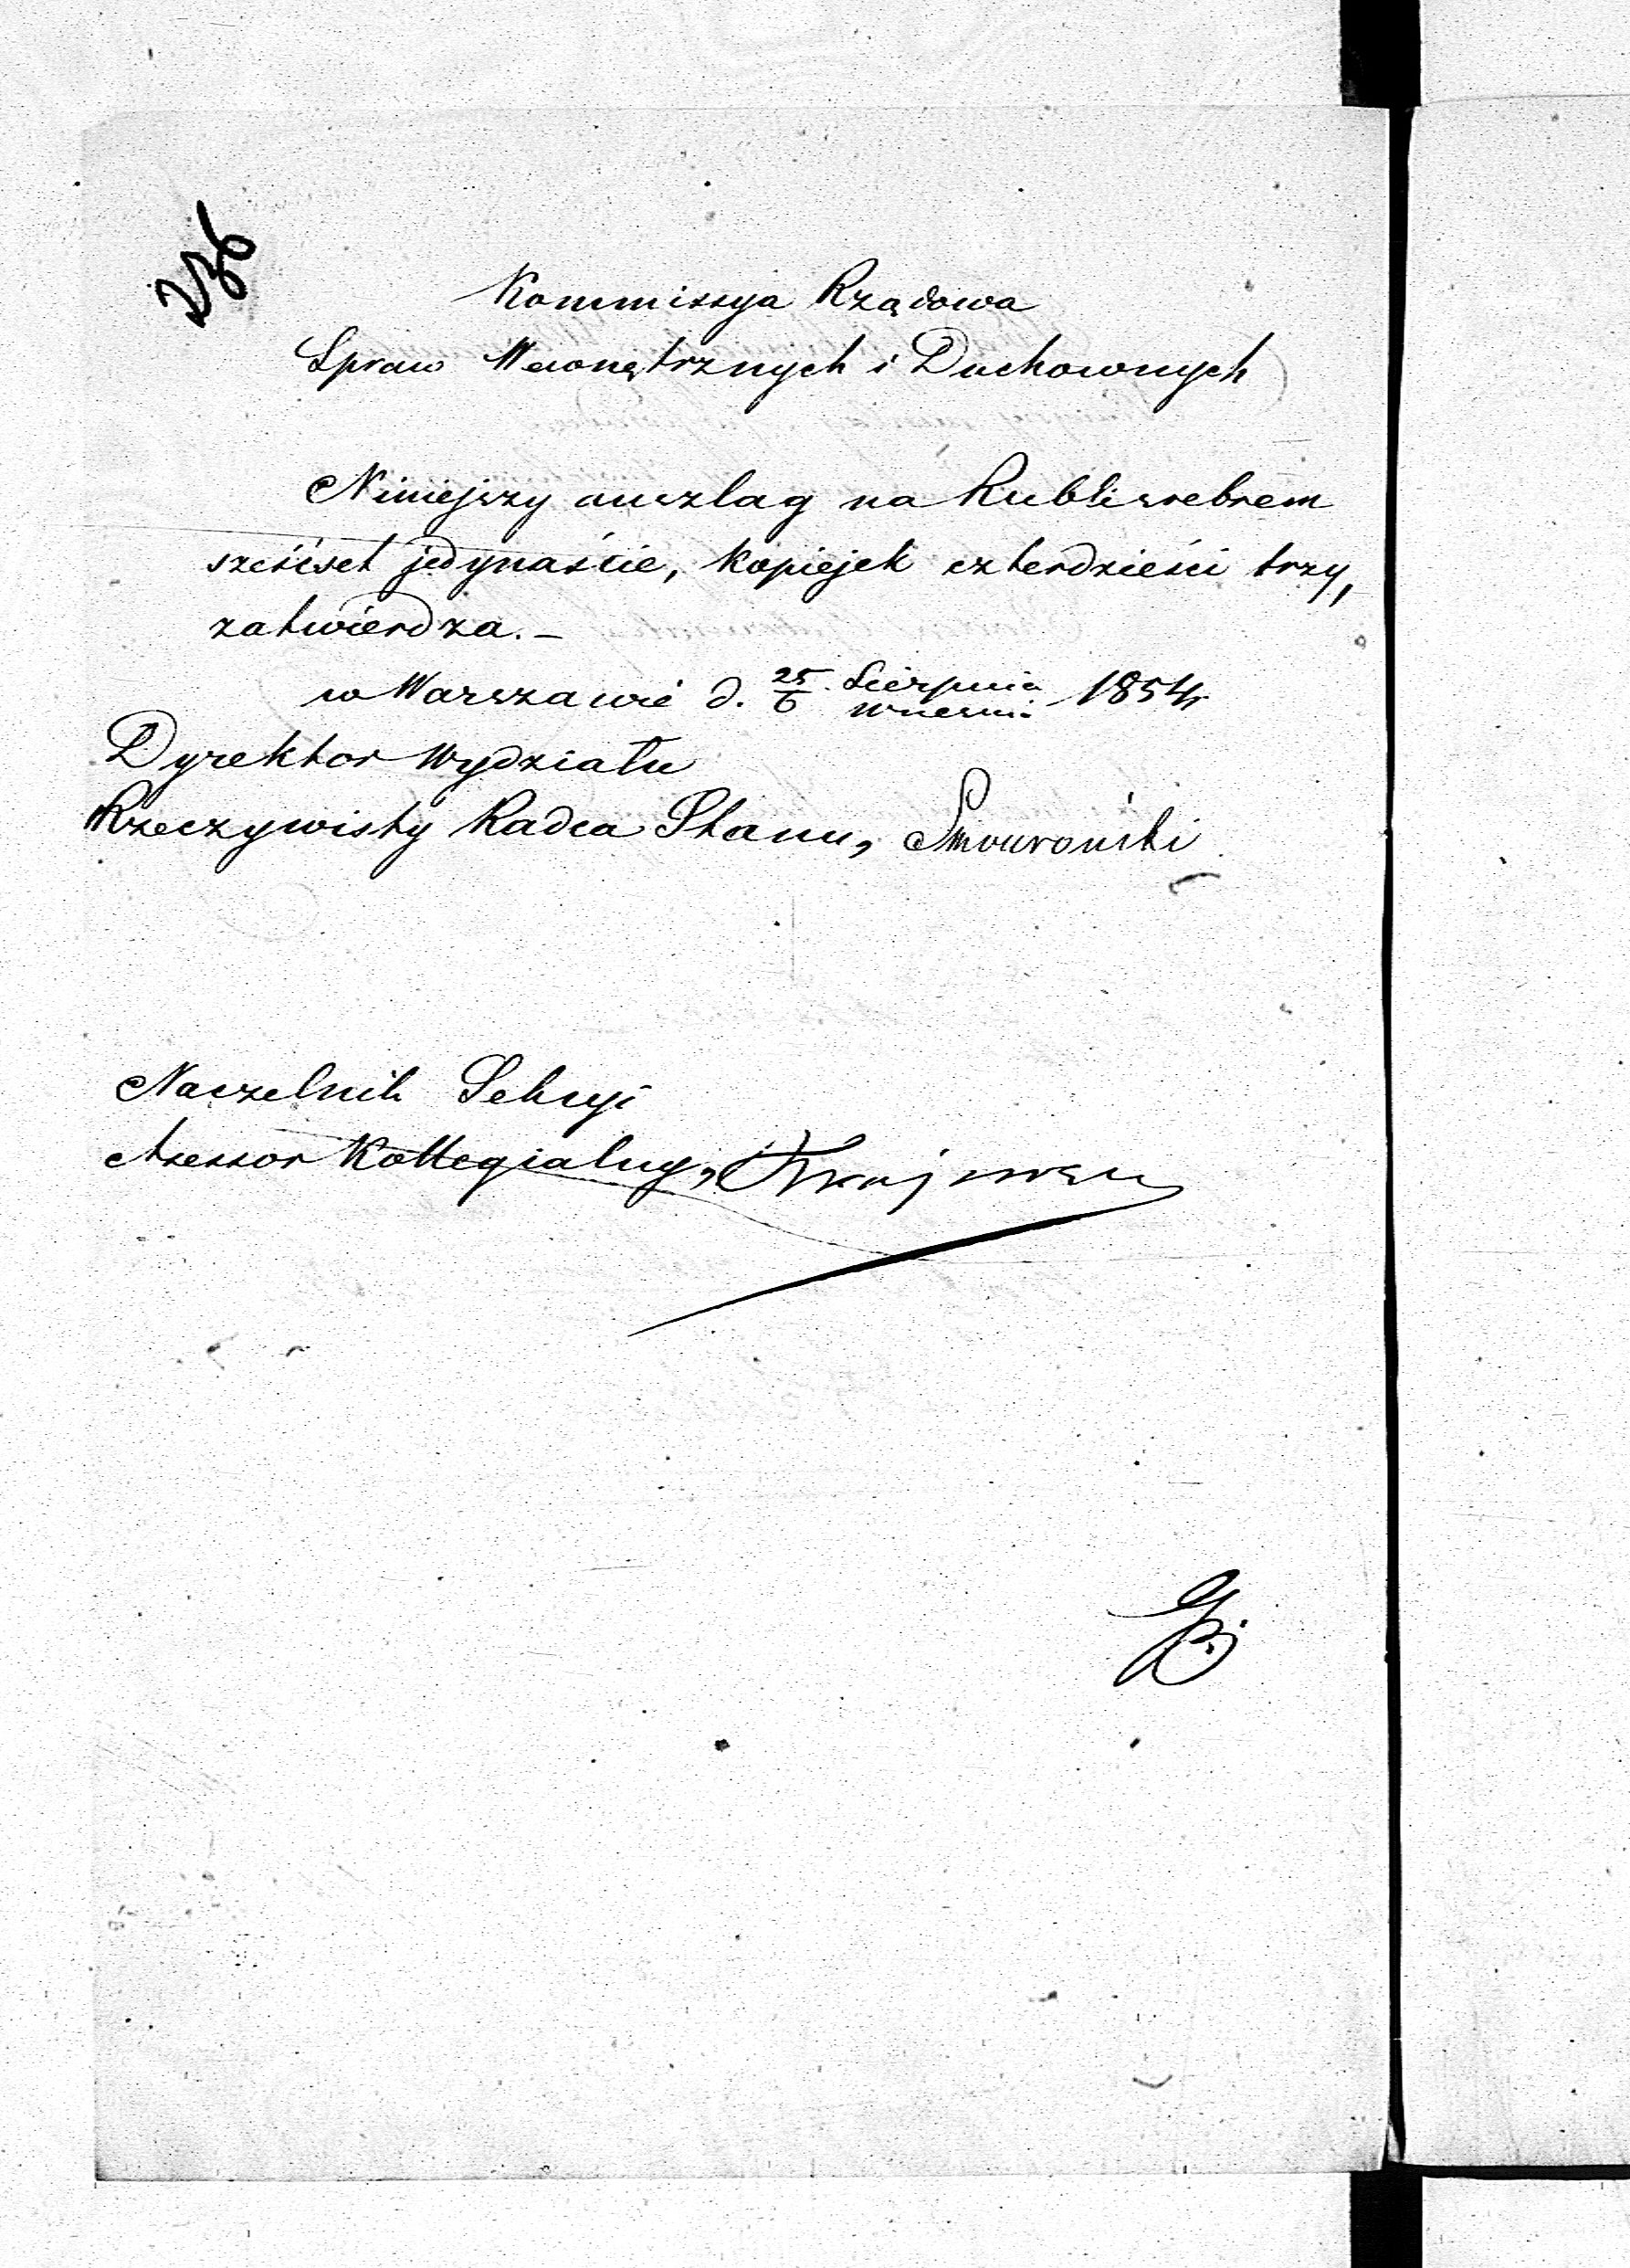 236
Kommissya Rządowa
Spraw Wewnętrznych i Duchownych
Niniejszy anszlag na Rubli srebrem
sześćset jedynaście, kopiejek czterdzieści trzy,
zatwierdza. _
w Warszawie d. 25/6 Sierpnia/Wrześni. 1854 r
Dyrektor Wydziału
Rzeczywisty Radca Stanu,
Naczelnik Sekcyi
Assessor Kollegialny,